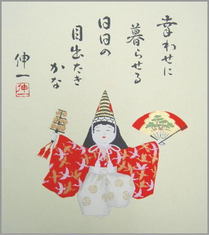 幸わせに
暮らせる
日日の
目出たき
かな
伸一
伸一